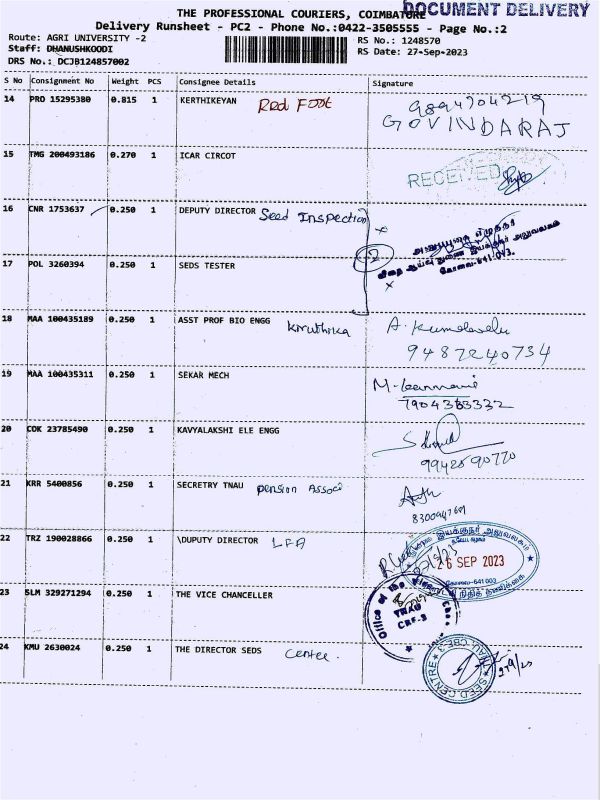 THE PROFESSIONAL COURIERS, COIMBATORE
DOCUMENT DELIVERY
Delivery Runsheet - PC2 - Phone No.:0422-3505555 - Page No.:2
Route: AGRI UNIVERSITY -2
RS No.: 1248570
Staff: DHANUSHKOODI
RS Date: 27-Sep-2023
DRS No.: DCJB124857002
S No Consignment No Weight PCS Consignee Details Signature
14 PRO 15295380 0.815 1 KERTHIKEYAN Red Foot 9894704219
GOVINDARAJ
15 TMG 200493186 0.270 1 ICAR CIRCOT
RECEIVED
16 CNR 1753637 0.250 1 DEPUTY DIRECTOR Seed Inspection
2
விதை ஆய்வு துணை இயக்குநர் அலுவலகம்
கோவை-641 013.
17 POL 3260394 0.250 1 SEDS TESTER
18 MAA 100435189 0.250 1 ASST PROF BIO ENGG Kiruthika
9487240734
19 MAA 100435311 0.250 1 SEKAR MECH
7904383332
20 CDK 23785490 0.250 1 KAVYALAKSHI ELE ENGG
9942590770
21 KRR 5400856 0.250 1 SECRETRY TNAU pension Associ
22 TRZ 190028866 0.250 1 \DUPUTY DIRECTOR LFA
இயக்குநர் அலுவலகம்
26 SEP 2023
கோவை-641 003
நிதித் தணிக்கை
23 SLM 329271294 0.250 1 THE VICE CHANCELLER
Office of the
TNAU
CBE-3
24 KMU 2630024 0.250 1 THE DIRECTOR SEDS Centre
SEED CENTRE TNAU CBE-3
27/9/23